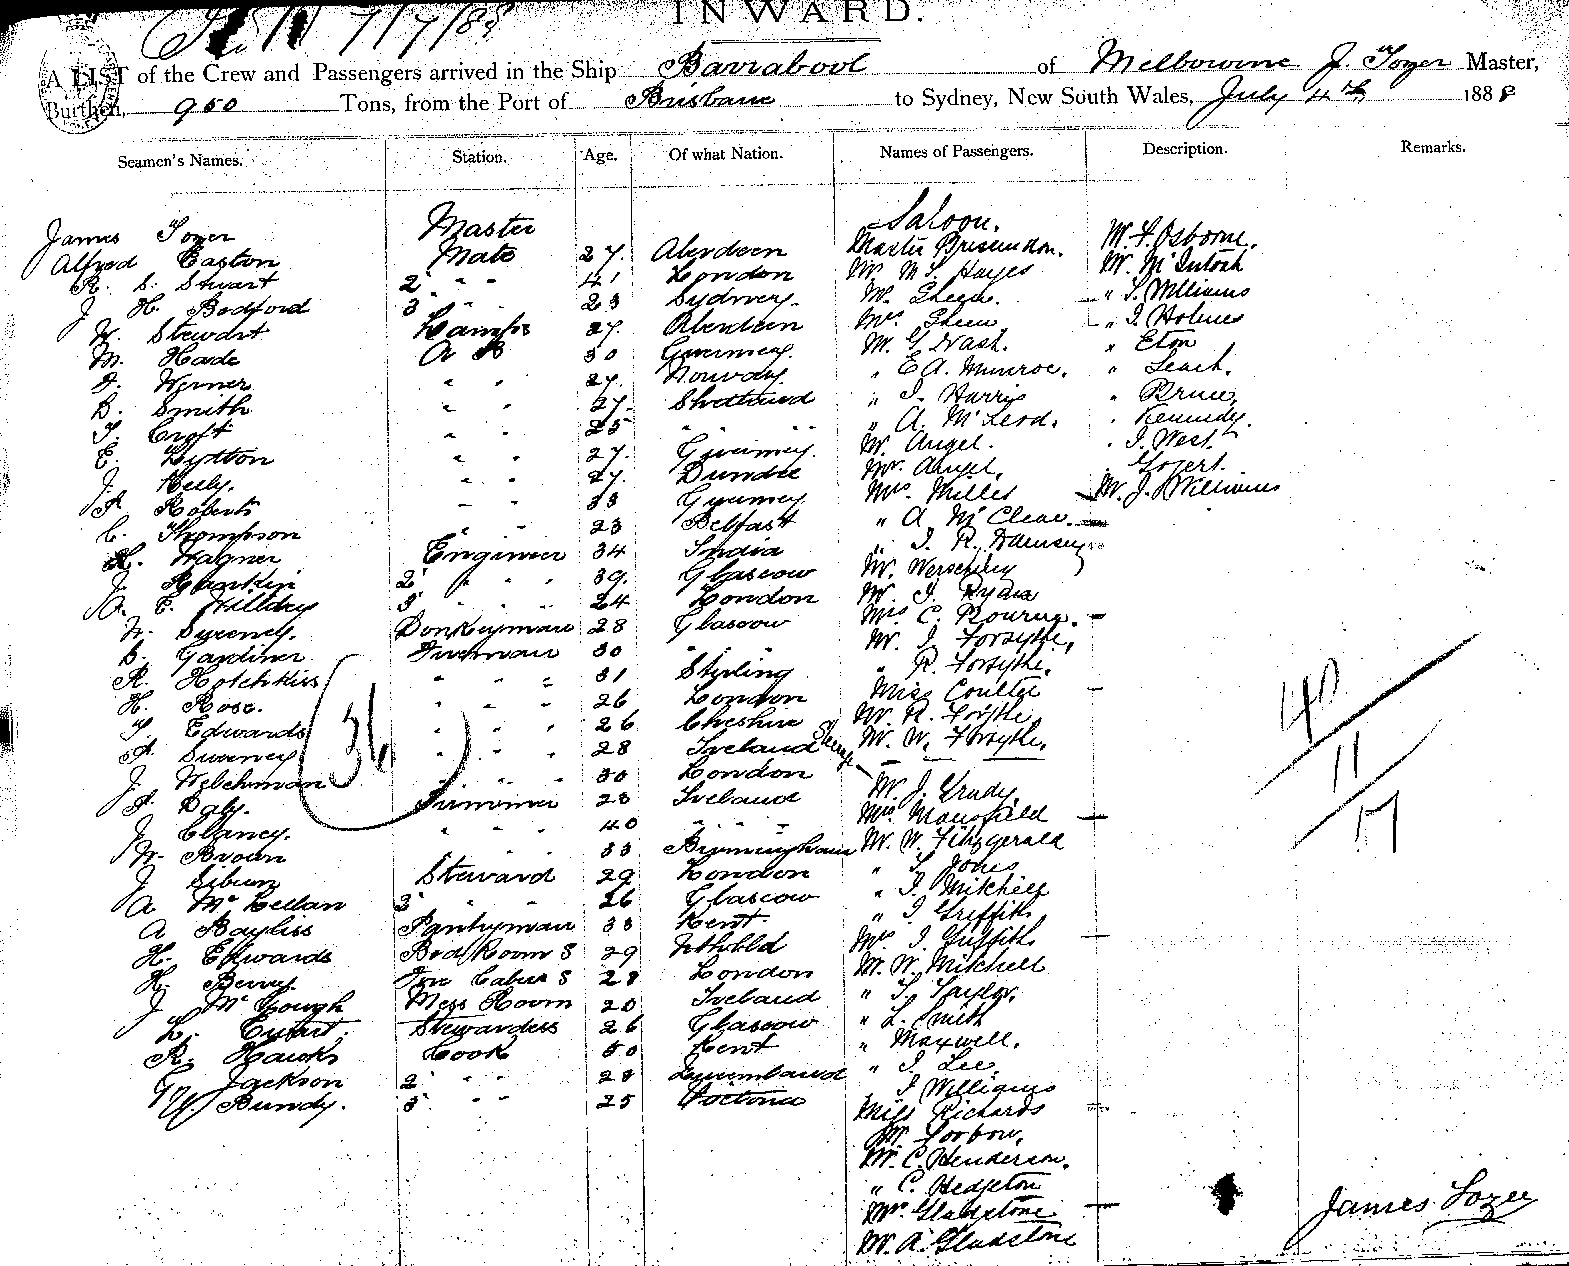 7/7/88
INWARD.
A LIST of the Crew and Passengers arrived in the Ship Barrabool of Melbourne J. Tozer Master,
Burthen, 950 Tons, from the Port of Brisbane to Sydney, New South Wales, July 4th 1888
Seamen's Names. Station. Age. Of what Nation. Names of Passengers. Description. Remarks.
Saloon.
James Tozer Master
Alfred Easton Mate 27. Aberdeen Master W. F. Osborne.
R. S. Stuart 2 " " 41 London Mr. Hayes Mr. McIntosh
J. H. Bedford 3 " " 23 Sydney. Mr. Sheen. " Williams
W. Stewart Lamps 27. Aberdeen Mrs Sheen " J. Holmes
M. Hade A B 30 Guernsey. Mr. G. Nash. " Eton
Werner " " 27. Norway " E. A. Munroe. " Leach.
B. Smith " " 27. Shetland " J. Harris " Bruce
T. Croft " " 25 " " " " A. McLeod. " Kennedy.
E. Lytton " " 27. Guernsey. Mr. Angel. " J. West.
J. Kelly. " " 27. Dundee Mr. Angel.
Roberts " " 33 Guernsey Mrs Miller Mr. J. Williams
C. Thompson " " 23 Belfast " A. McClean.
H. Wagner Engineer 34 India " J. R. Ramsey
J. Harkin 2 " " " 39. Glascow Mr.
A. E. Hilldry 3 " " " 24 London Mr. J. Ryan
W. Sweeney. Donkeyman 28 Glascow Mrs C.
B. Gardiner Fireman 30 " " Mr. J. Forsythe.
R. Hotchkiss " " " 31 Styrling " R. Forsythe.
H. Rose. " " " 26 London Miss Coultge
T. Edwards " " " 26 Cheshire Mr. R. Forsythe
Sweeney " " " 28 Ireland Mr. W. Forsythe.
J. Welchman " " " 30 London
36
40
11
17
P. Daly. Trimmer 23 Ireland Mr. J. Grady
J. Clancy. " " " 40 " " " Mrs Mansfield
W. Brown " " " 33 Birmingham Mr. W. Fitzgerald
J. Sibun Steward 29 London " Jones
A McLellan 2 " " 26 Glascow " J. Mitchell
A Bayliss Pantryman 33 Kent. " J. Griffith
H. Edwards Bed Room S 29 Mrs J. Griffith
H. Berry Fore Cabin S 28 London Mr. W. Mitchell
J. McGough Mess Room 20 Ireland " T. Taylor.
L. Ewart. Stewardess 26 Glascow " L. Smith
R. Hawks Cook 50 Kent " Maxwell.
G. Jackson 2 " " 28 " J. Lee.
W. Bundy. 3 " " 25 Victoria " J. Williams
Miss Richards
Mr.
Mr. C. Henderson.
" C. Hedgeton
Mrs. Gladstone
Mr. A. Gladstone
James Tozer